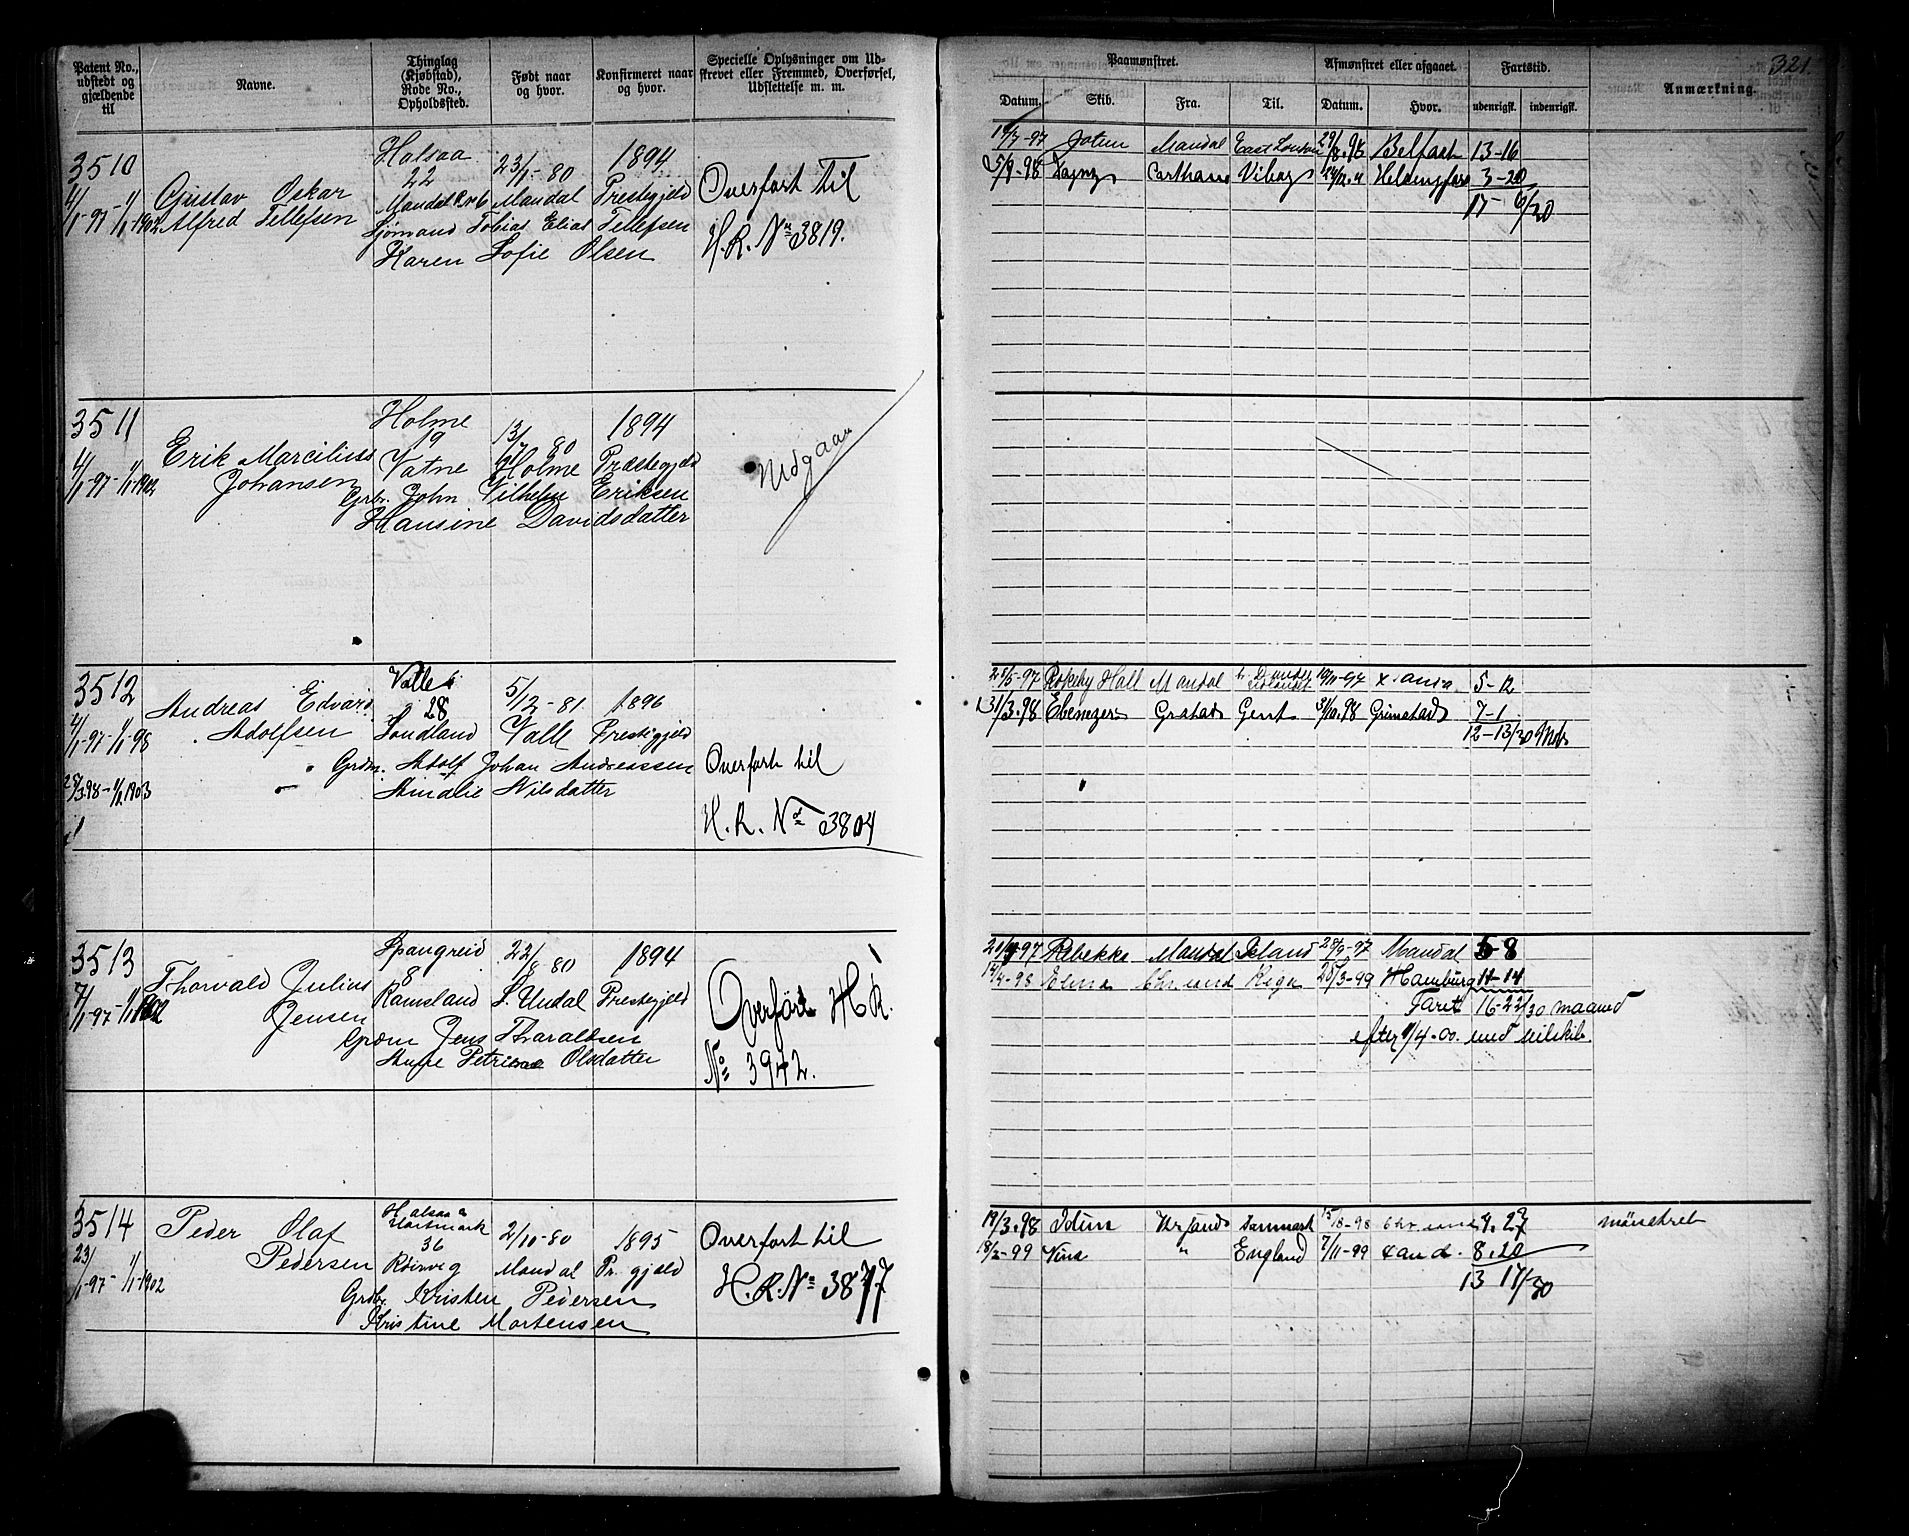 Patent No., udstedt og gjældende til
Navne.
Thinglag (Kjøbstad), Rode No., Opholdssted.
Født naar og hvor.
Konfirmeret naar og hvor.
Specielle Oplysninger om Udskrevet eller Fremmed, Overførsel, Udslettelse m. m.
Paamønstret.
Afmønstret eller afgaaet.
Fartstid.
Anmærkning.
321.
Datum.
Skib.
Fra.
Til.
Datum.
Hvor.
udenrigsk.
indenrigsk.
3510
4/1-97-1/1 1902
Gustav Oskar
Alfred Tellefsen
Halsaa
22
Mandal
23/1-80
Mandal
1894
Prestegjeld
Sjømand Tobias Elias Tellefsen
Karen Sofie Olsen
Overfort til
H.R. No 3819.
Jotun Mandal East London 29/8.98 Belfast 13-16
5/9-98
3-20
17-6/30
3511
4/1-97-1/1-1902
Erik Marcilius
Johansen
Holme
19
Vatne
Holme
1894
Præstegjeld
Grbr. John Vilhelm Eriksen
Hansine Davidsdatter
Udgaar
3512
4/1-97-1/1-98
1/1.1903
Andreas Edvard
Adolfsen
Valle
28
Sondland
5/12-81
Valle
1896
Prestegjeld
Grdbr. Adolf Johan Andreassen
Amalie Nilsdatter
Overfort til
H.R. No 3804
Rokeby Hall Mandal 19/11-97 X.ania 5-12
31/3.98 Ebenezer Gent 3/10.98 Grimstad 7-1
12-13/30 Mdr
3513
7/1-97-1/1 1902
Thorvald Julius
Jensen
Spangreid
8
Ramsland
22/8 80
S. Undal
1894
Prestegjeld
Grdm Jens Tharaldsen
Anne Petrine Olsdatter
Overført H R.
No 3942.
Rebekka Mandal Island 28/9-97 Mandal 5-8
14/4-98 Elina Chr.sand Riga 28/3-99 Hamburg 11-14
Faret 16-22/30 maaned
efter 1/4-00 med seilskib.
3514
23/1-97-1/1-1902
Peder Olaf
Pedersen
Halsaa &
Hartmark
36
2/10-80
Mandal
1895
Pr. gjeld
Grdbr. Kristen Pedersen
Kristine Mortensen
Overfort til
H.R. No 3877
19/3.98 Idun Danmark 15/8-98 Chr.sand 4.27 mønstret
18/2-99 England 7/11-99 8.20
13 17/30